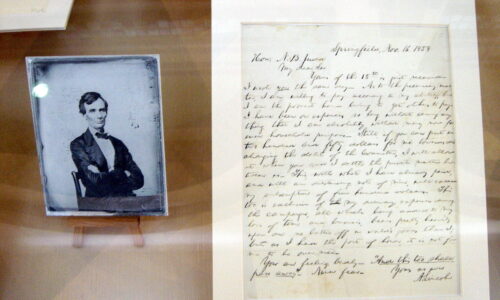 Springfield, Nov. 16 1858
Hon. N. B. Judd
My dear Sir
Yours of the 15th is just received.
I wrote you the same day. As to the pecuniary mat-
ter, I am willing to pay according to my ability; but
I am the poorest hand living to get others to pay.
I have been on expenses so long without earning any
thing that I am absolutely without money now for
even household purposes. Still, if you can put in
two hundred and fifty dollars for me towards dis-
charging the debt of the Committee, I will allow
it when you and I settle the private matter be-
tween us. This with what I have already paid,
and with an outstanding note of mine, will exceed
my subscription of five hundred dollars. This
too, is exclusive of my ordinary expenses during
the campaign, all which being added to my
loss of time and business, bears pretty heavily
upon one no better off in world's goods than I;
but as I had the post of honor, it is not for
me to be over nice.
You are feeling badly. And this too shall
pass away. Never fear.
Yours as ever
A. Lincoln